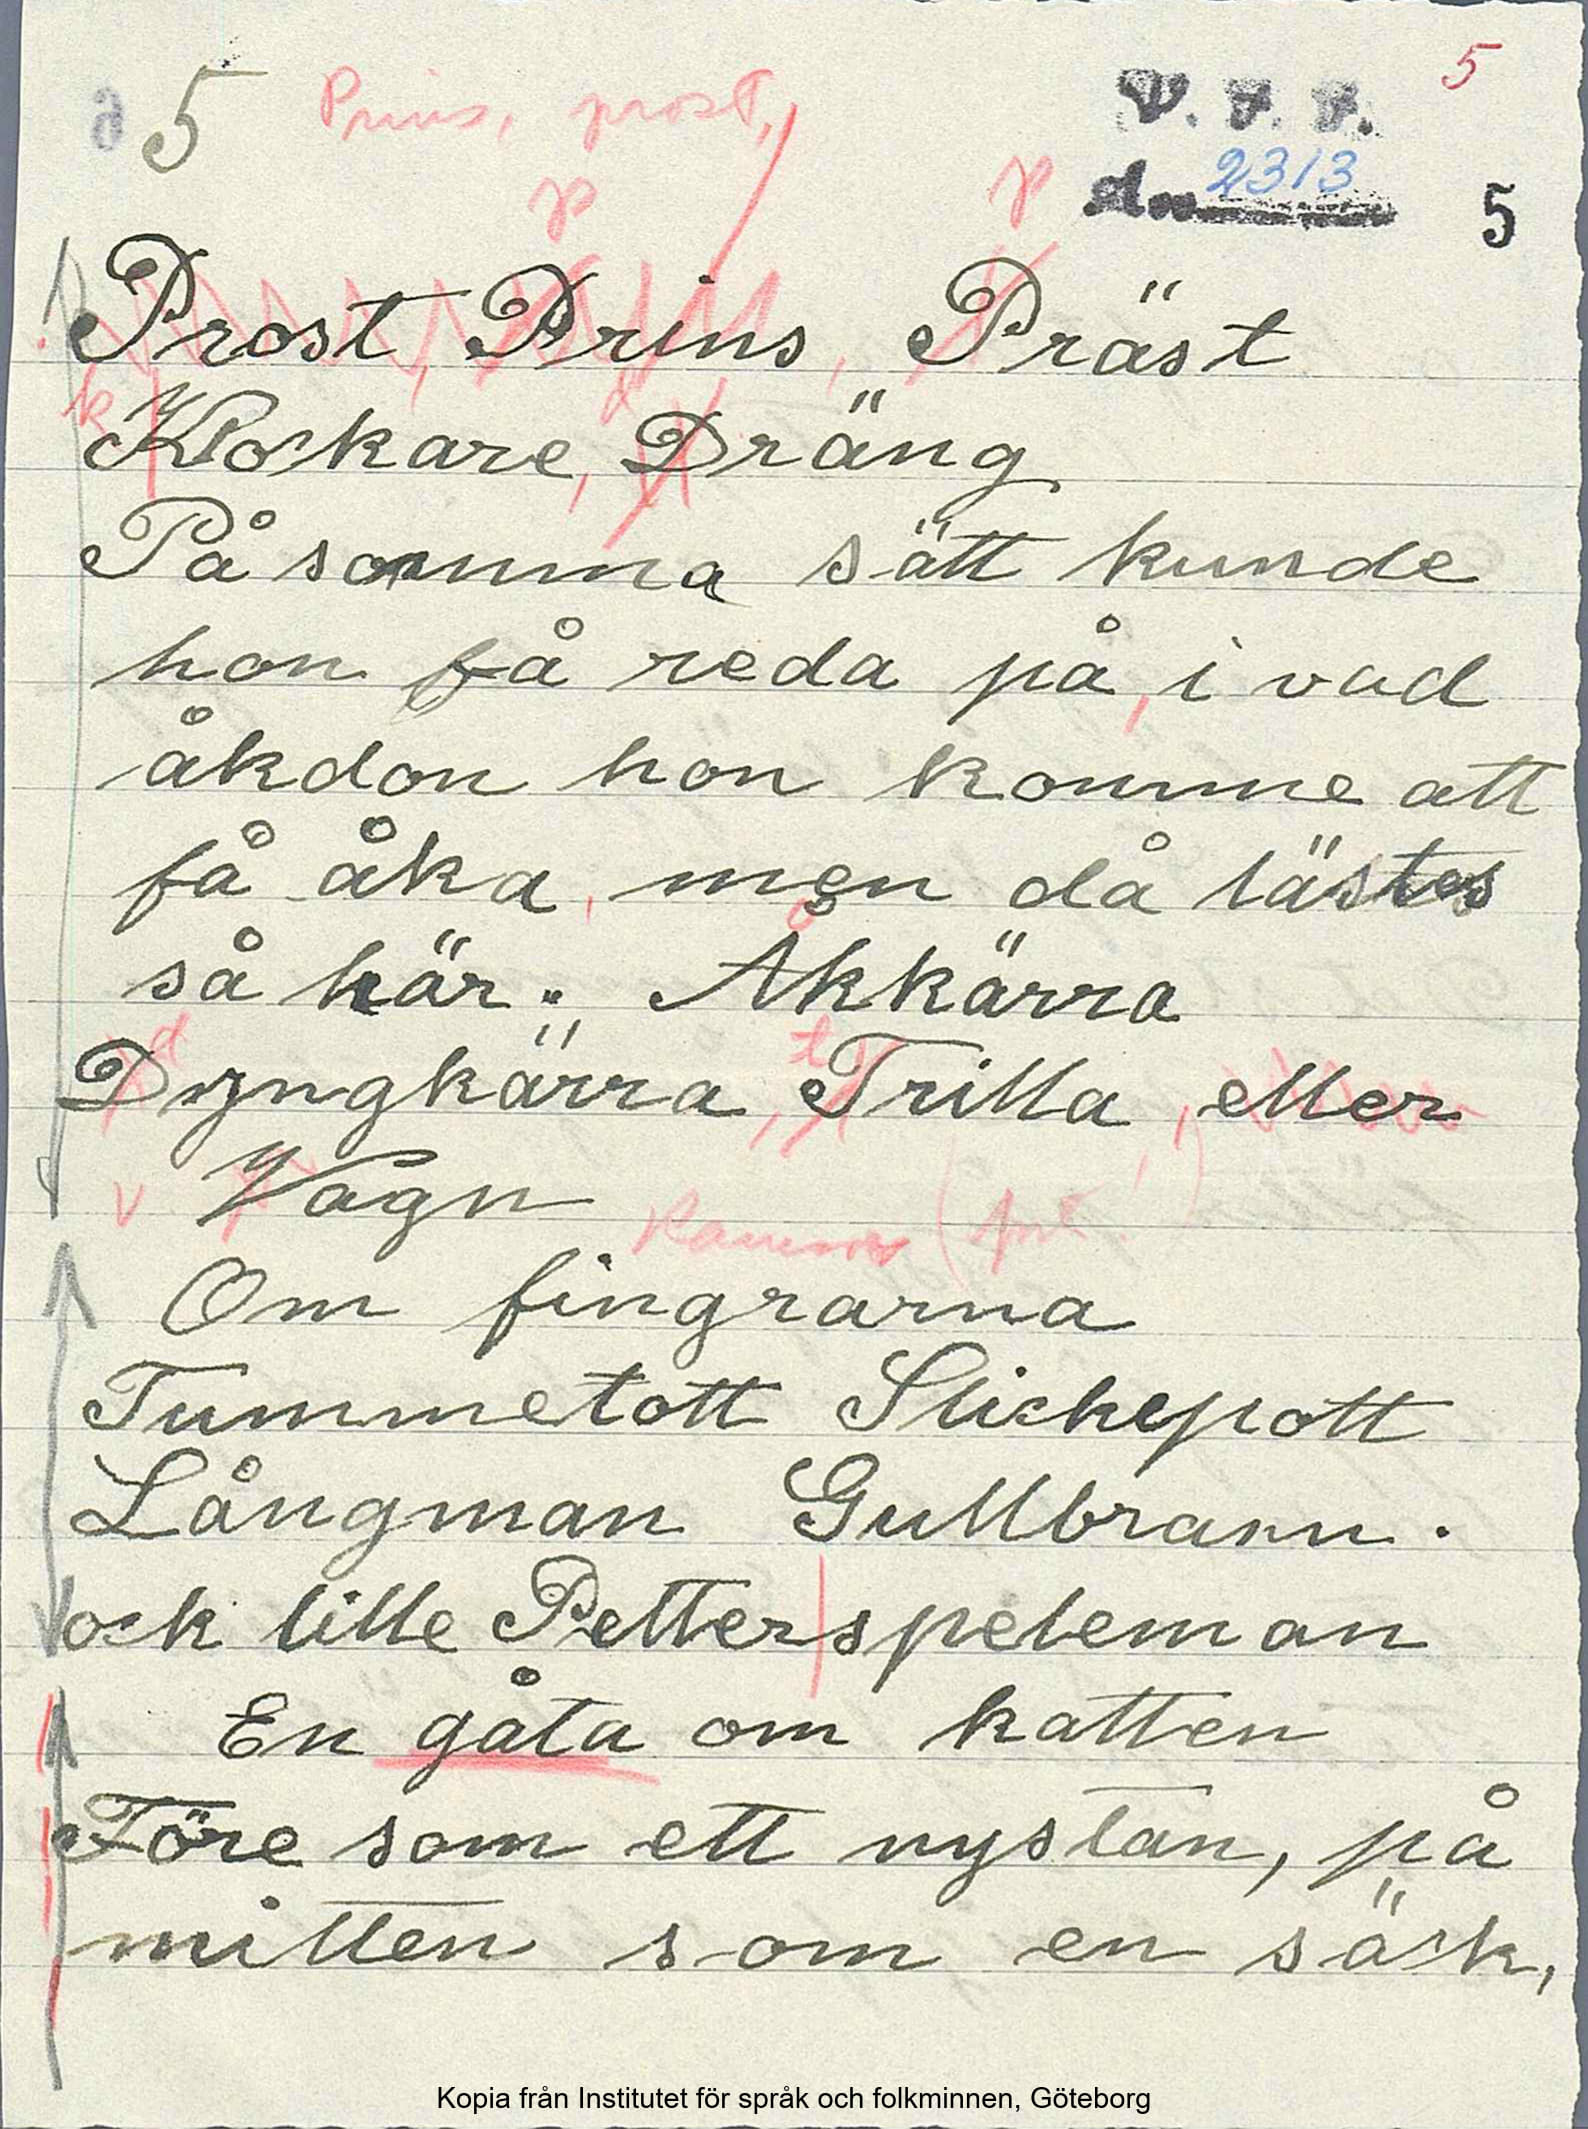 5
5 Prins, prost,
V. F. F.
dnr 2313
5
p p
Prost, Prins, Präst
k d
Klockare, Dräng
På samma sätt kunde
hon få reda på, i vad
åkdon hon komme att
få åka, men då lästes
så här: Åkkärra
d t
Dyngkärra, Trilla, eller
v Vagn
Om fingrarna
Tummetott Slickepott
Långman Gullbrann.
ock lille Petter|speleman
En gåta om katten
Före som ett nystan, på
mitten som en säck,
Kopia från Institutet för språk och folkminnen, Göteborg